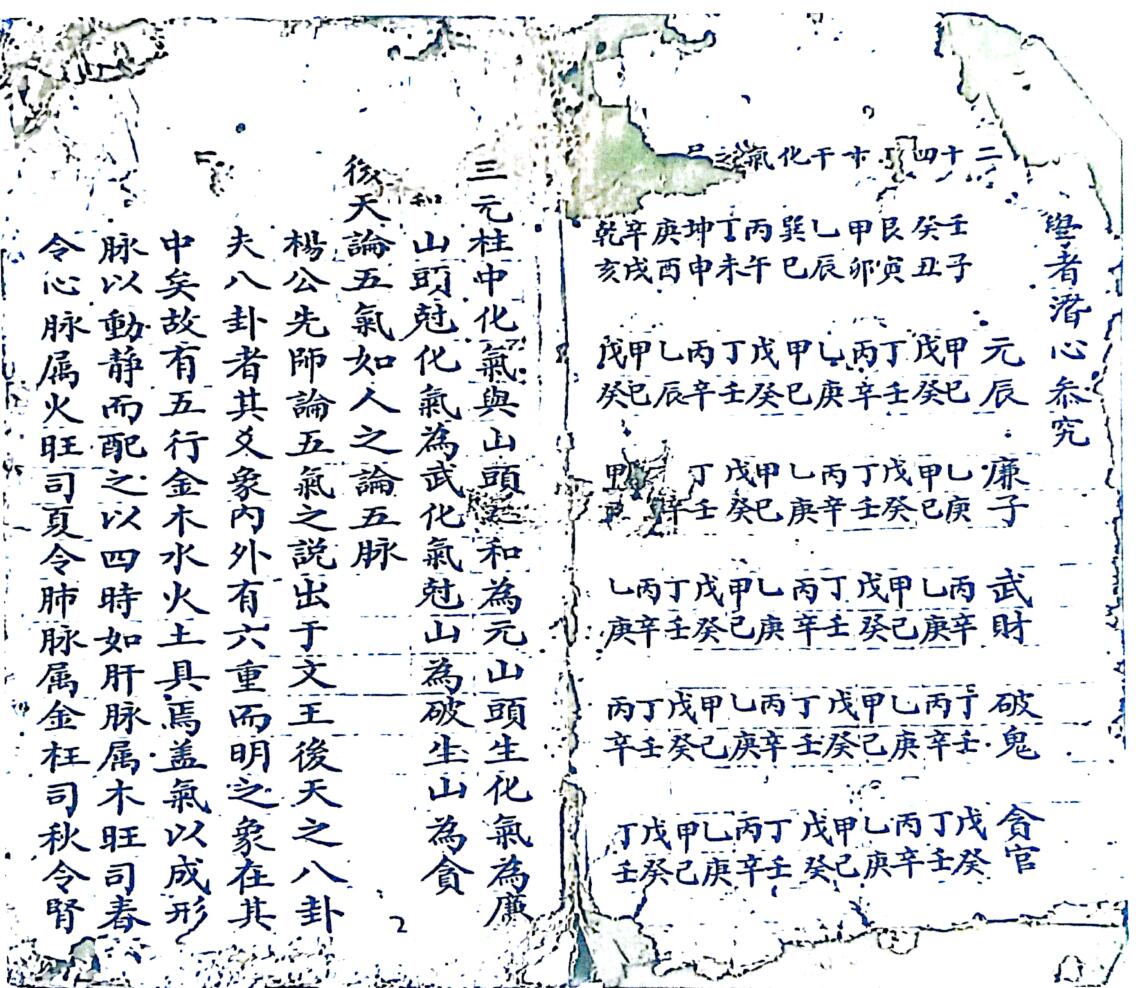 學者潛心叅究
二十四十干化氣之
壬子 癸丑 艮寅 甲卯 乙辰 巽巳 丙午 丁未 坤申 庚酉 辛戌 乾亥
元辰 甲巳 戊癸 丁壬 丙辛 乙庚 甲巳 戊癸 丁壬 丙辛 乙辰 甲巳 戊癸
廉子 乙庚 甲己 戊癸 丁壬 丙辛 乙庚 甲巳 戊癸 丁壬 辛 甲
武財 丙辛 乙庚 甲己 戊癸 丁壬 丙辛 乙庚 甲己 戊癸 丁壬 丙辛 乙庚
破鬼 丁壬 丙辛 乙庚 甲己 戊癸 丁壬 丙辛 乙庚 甲己 戊癸 丁壬 丙辛
貪官 戊癸 丁壬 丙辛 乙庚 甲己 戊癸 丁壬 丙辛 乙庚 甲己 戊癸 丁壬
三元柱中化氣與山頭之和為元山頭生化氣為廉
和山頭尅化氣為武化氣尅山為破生山為貪
後天論五氣如人之論五脉
楊公先師論五氣之說出于文王後天之八卦
夫八卦者其爻象內外有六重而明之象在其
中矣故有五行金木水火土具焉盖氣以成形
脉以動靜而配之以四時如肝脉属木旺司春
令心脉属火旺司夏令肺脉属金枉司秋令腎